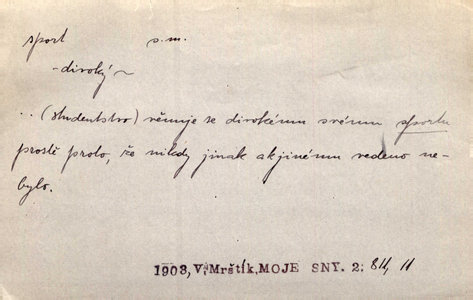 sport s. m.
- divoký ~
... (studentstvo) věnuje se divokému svému sportu
prostě proto, že nikdy jinak a k jinému vedeno ne-
bylo.
1903, V. Mrštík, MOJE SNY. 2: 84, 11